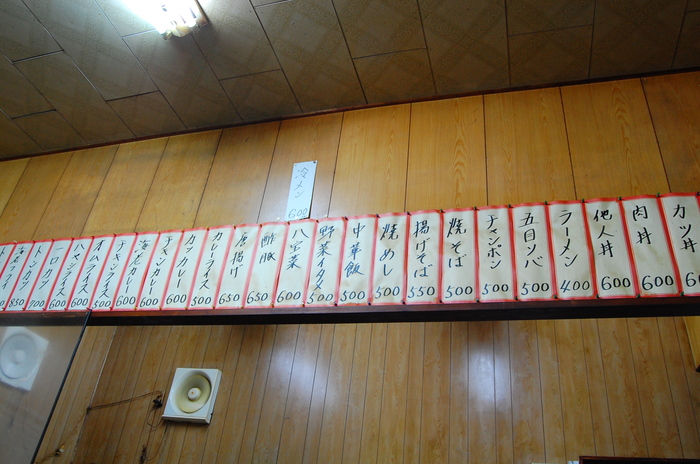 カツ丼 6
肉丼 600
他人丼 600
ラーメン 400
五目ソバ 500
チャンポン 500
焼そば 500
揚げそば 550
焼めし 500
中華飯 500
野菜イタメ 500
八宝菜 600
酢豚 650
唐揚げ 650
カレーライス 500
カツカレー 600
チキンカレー 600
海老カレー 600
チキンライス 500
オムライス 500
ハヤシライス 600
一口カツ 600
トンカツ 700
850
冷メン 600